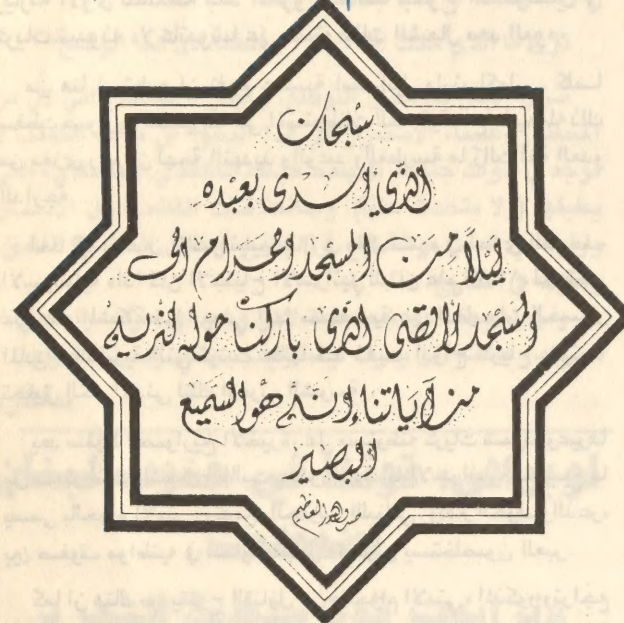 سبحان
الذي اسرى بعبده
ليلاً من المسجد الحرام الى
المسجد الاقصى الذي باركنا حوله لنريه
من آياتنا إنه هو السميع
البصير
صدق الله العظيم